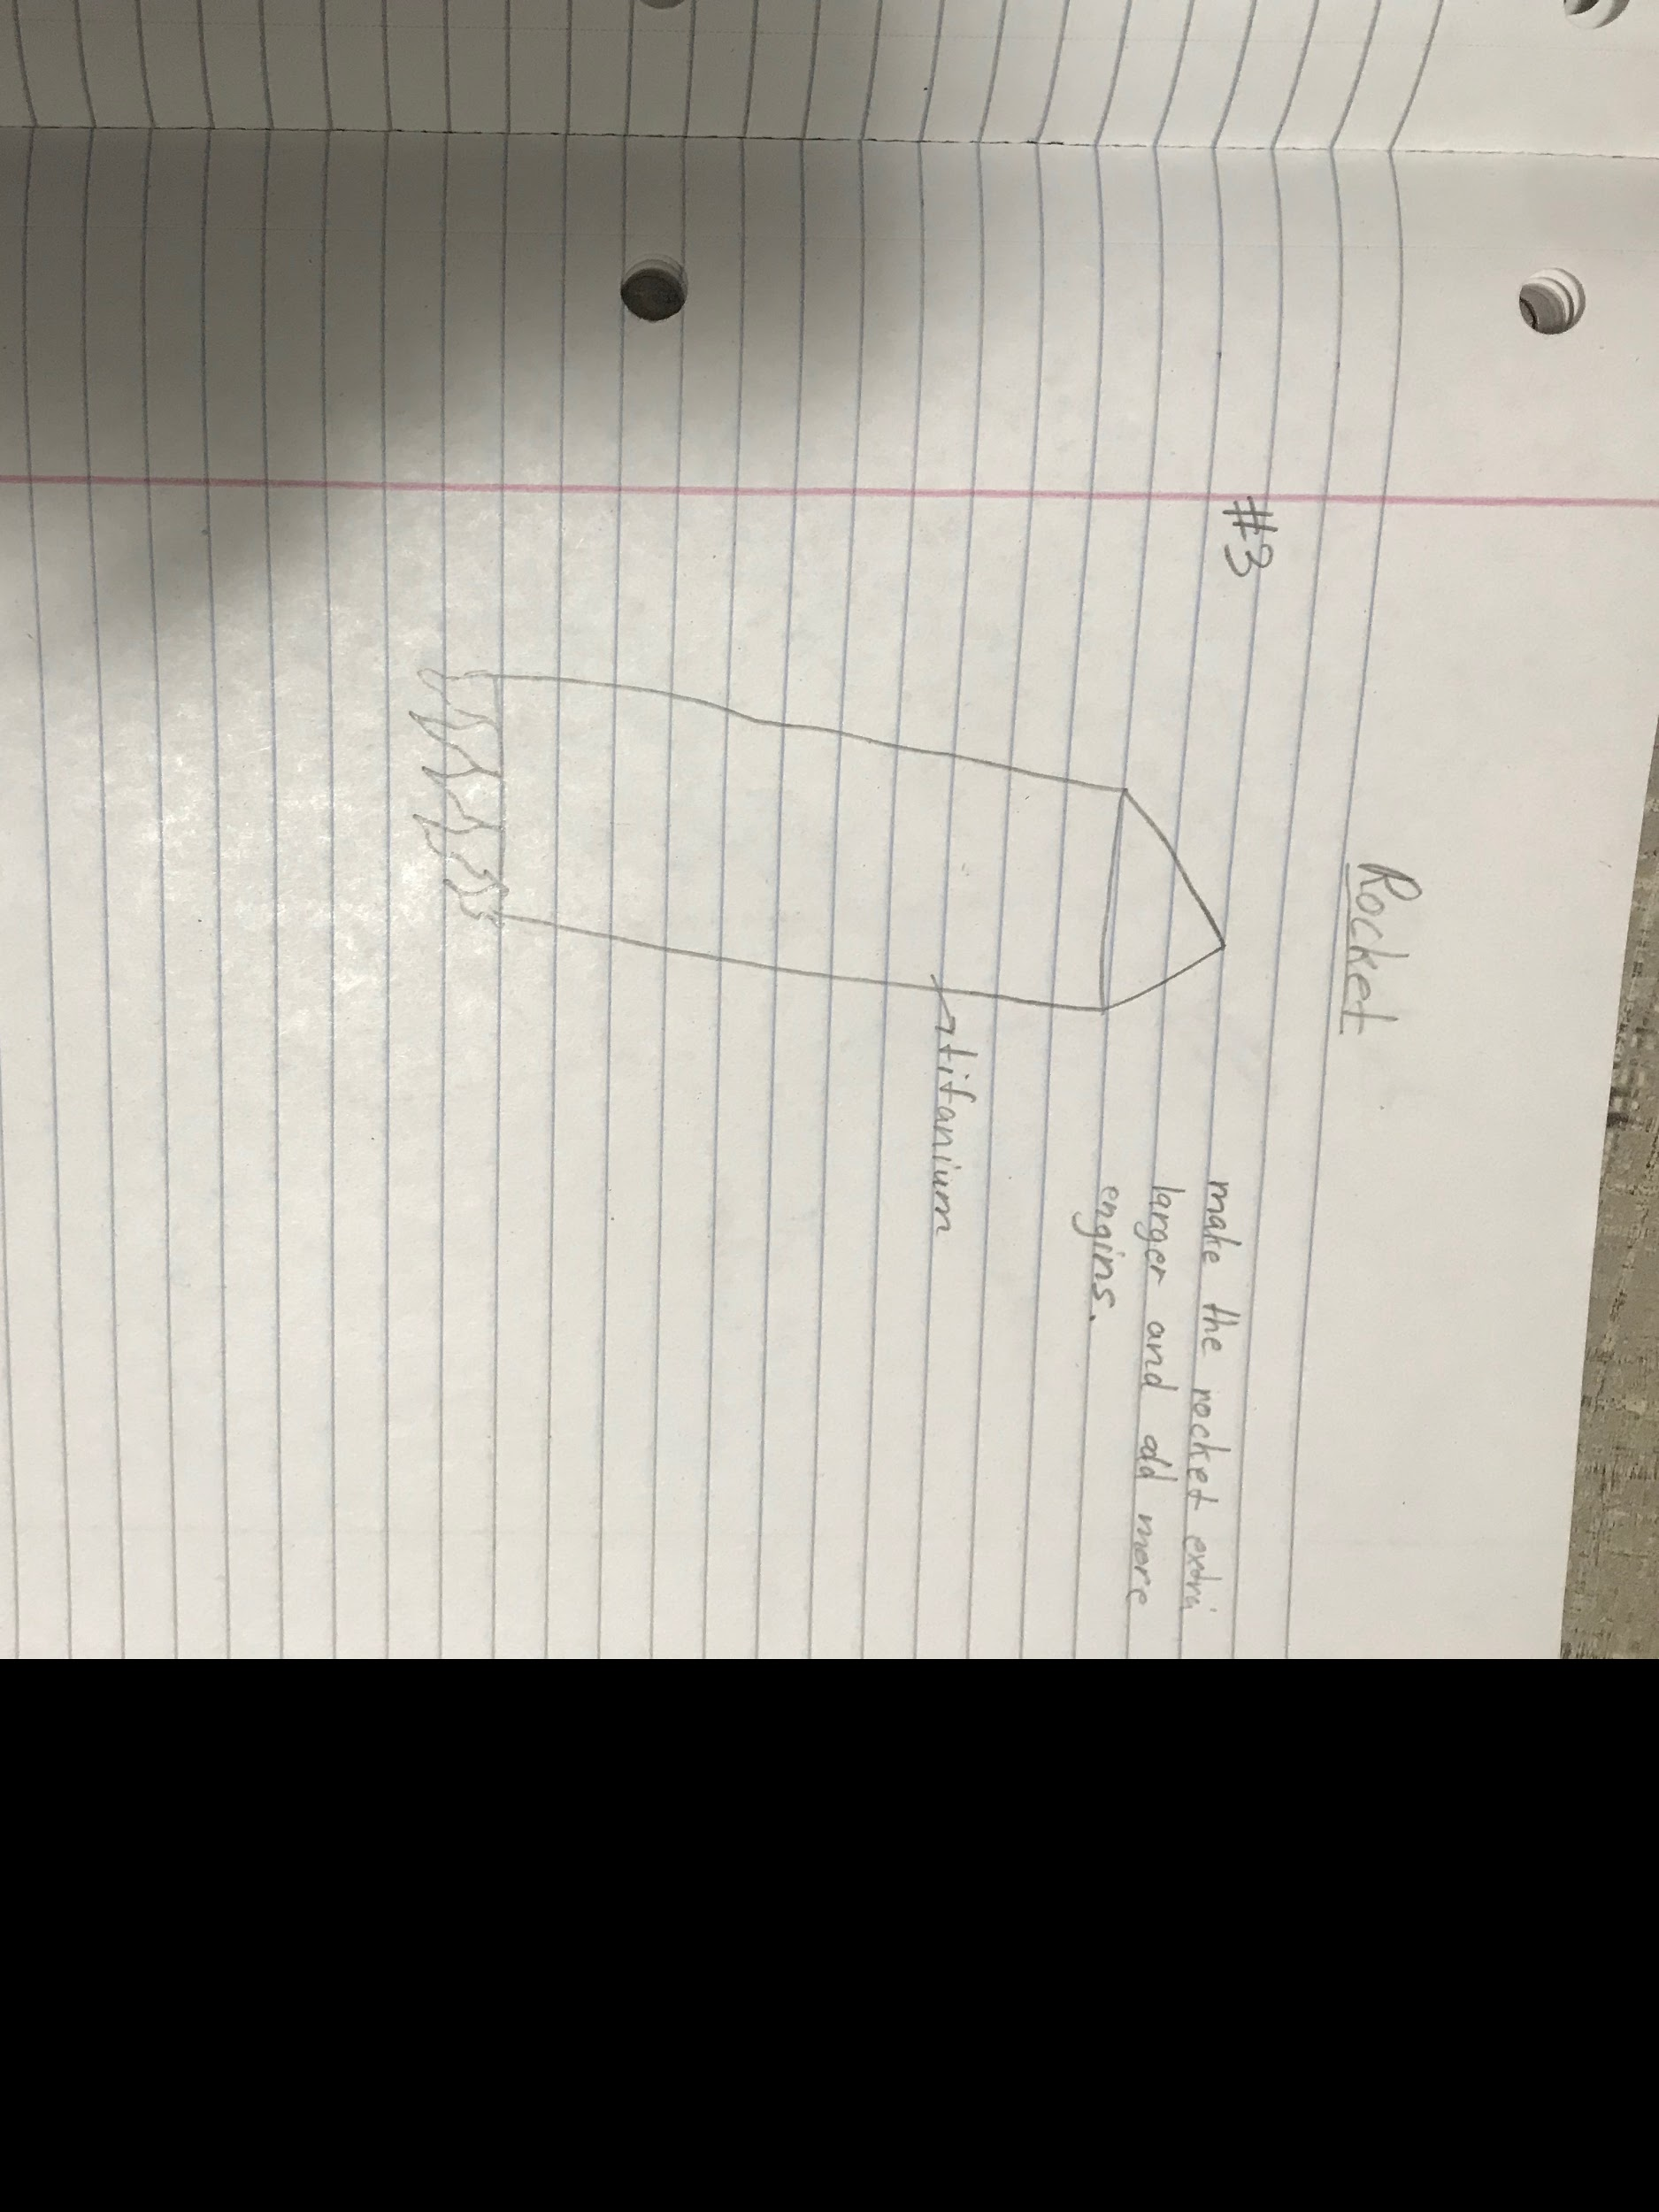 Rocket
#3
make the rocket extra
larger and add more
engins.
titanium